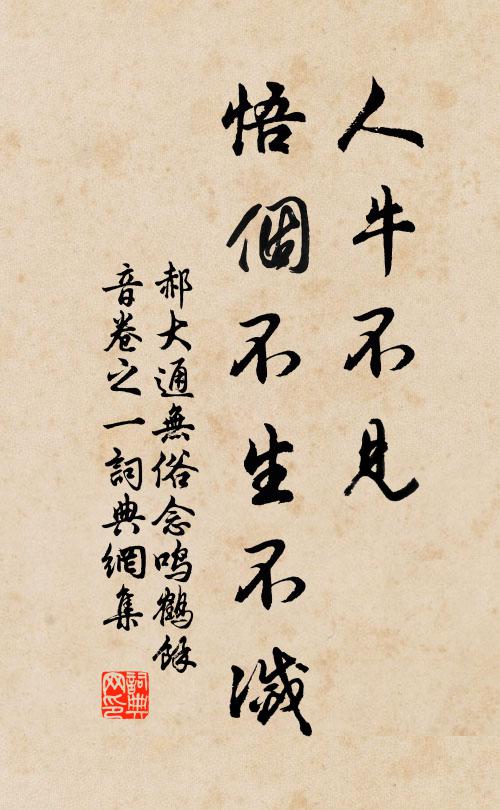 人牛不見
悟個不生不滅
郝大通無俗念鳴鶴餘
音卷之一詞典網集
詞典
网印